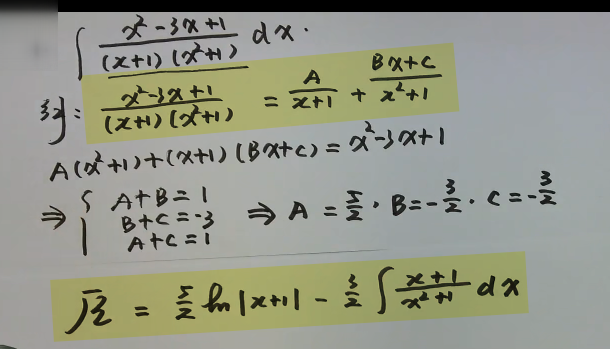 ∫ (x²-3x+1)/((x+1)(x²+1)) dx.
(x²-3x+1)/((x+1)(x²+1)) = A/(x+1) + (Bx+C)/(x²+1)
A(x²+1)+(x+1)(Bx+C) = x²-3x+1
⇒ { A+B=1
B+C=-3
A+C=1
⇒ A = 5/2 · B=-3/2 · C=-3/2
原 = 5/2 ln|x+1| - 3/2 ∫ (x+1)/(x²+1) dx